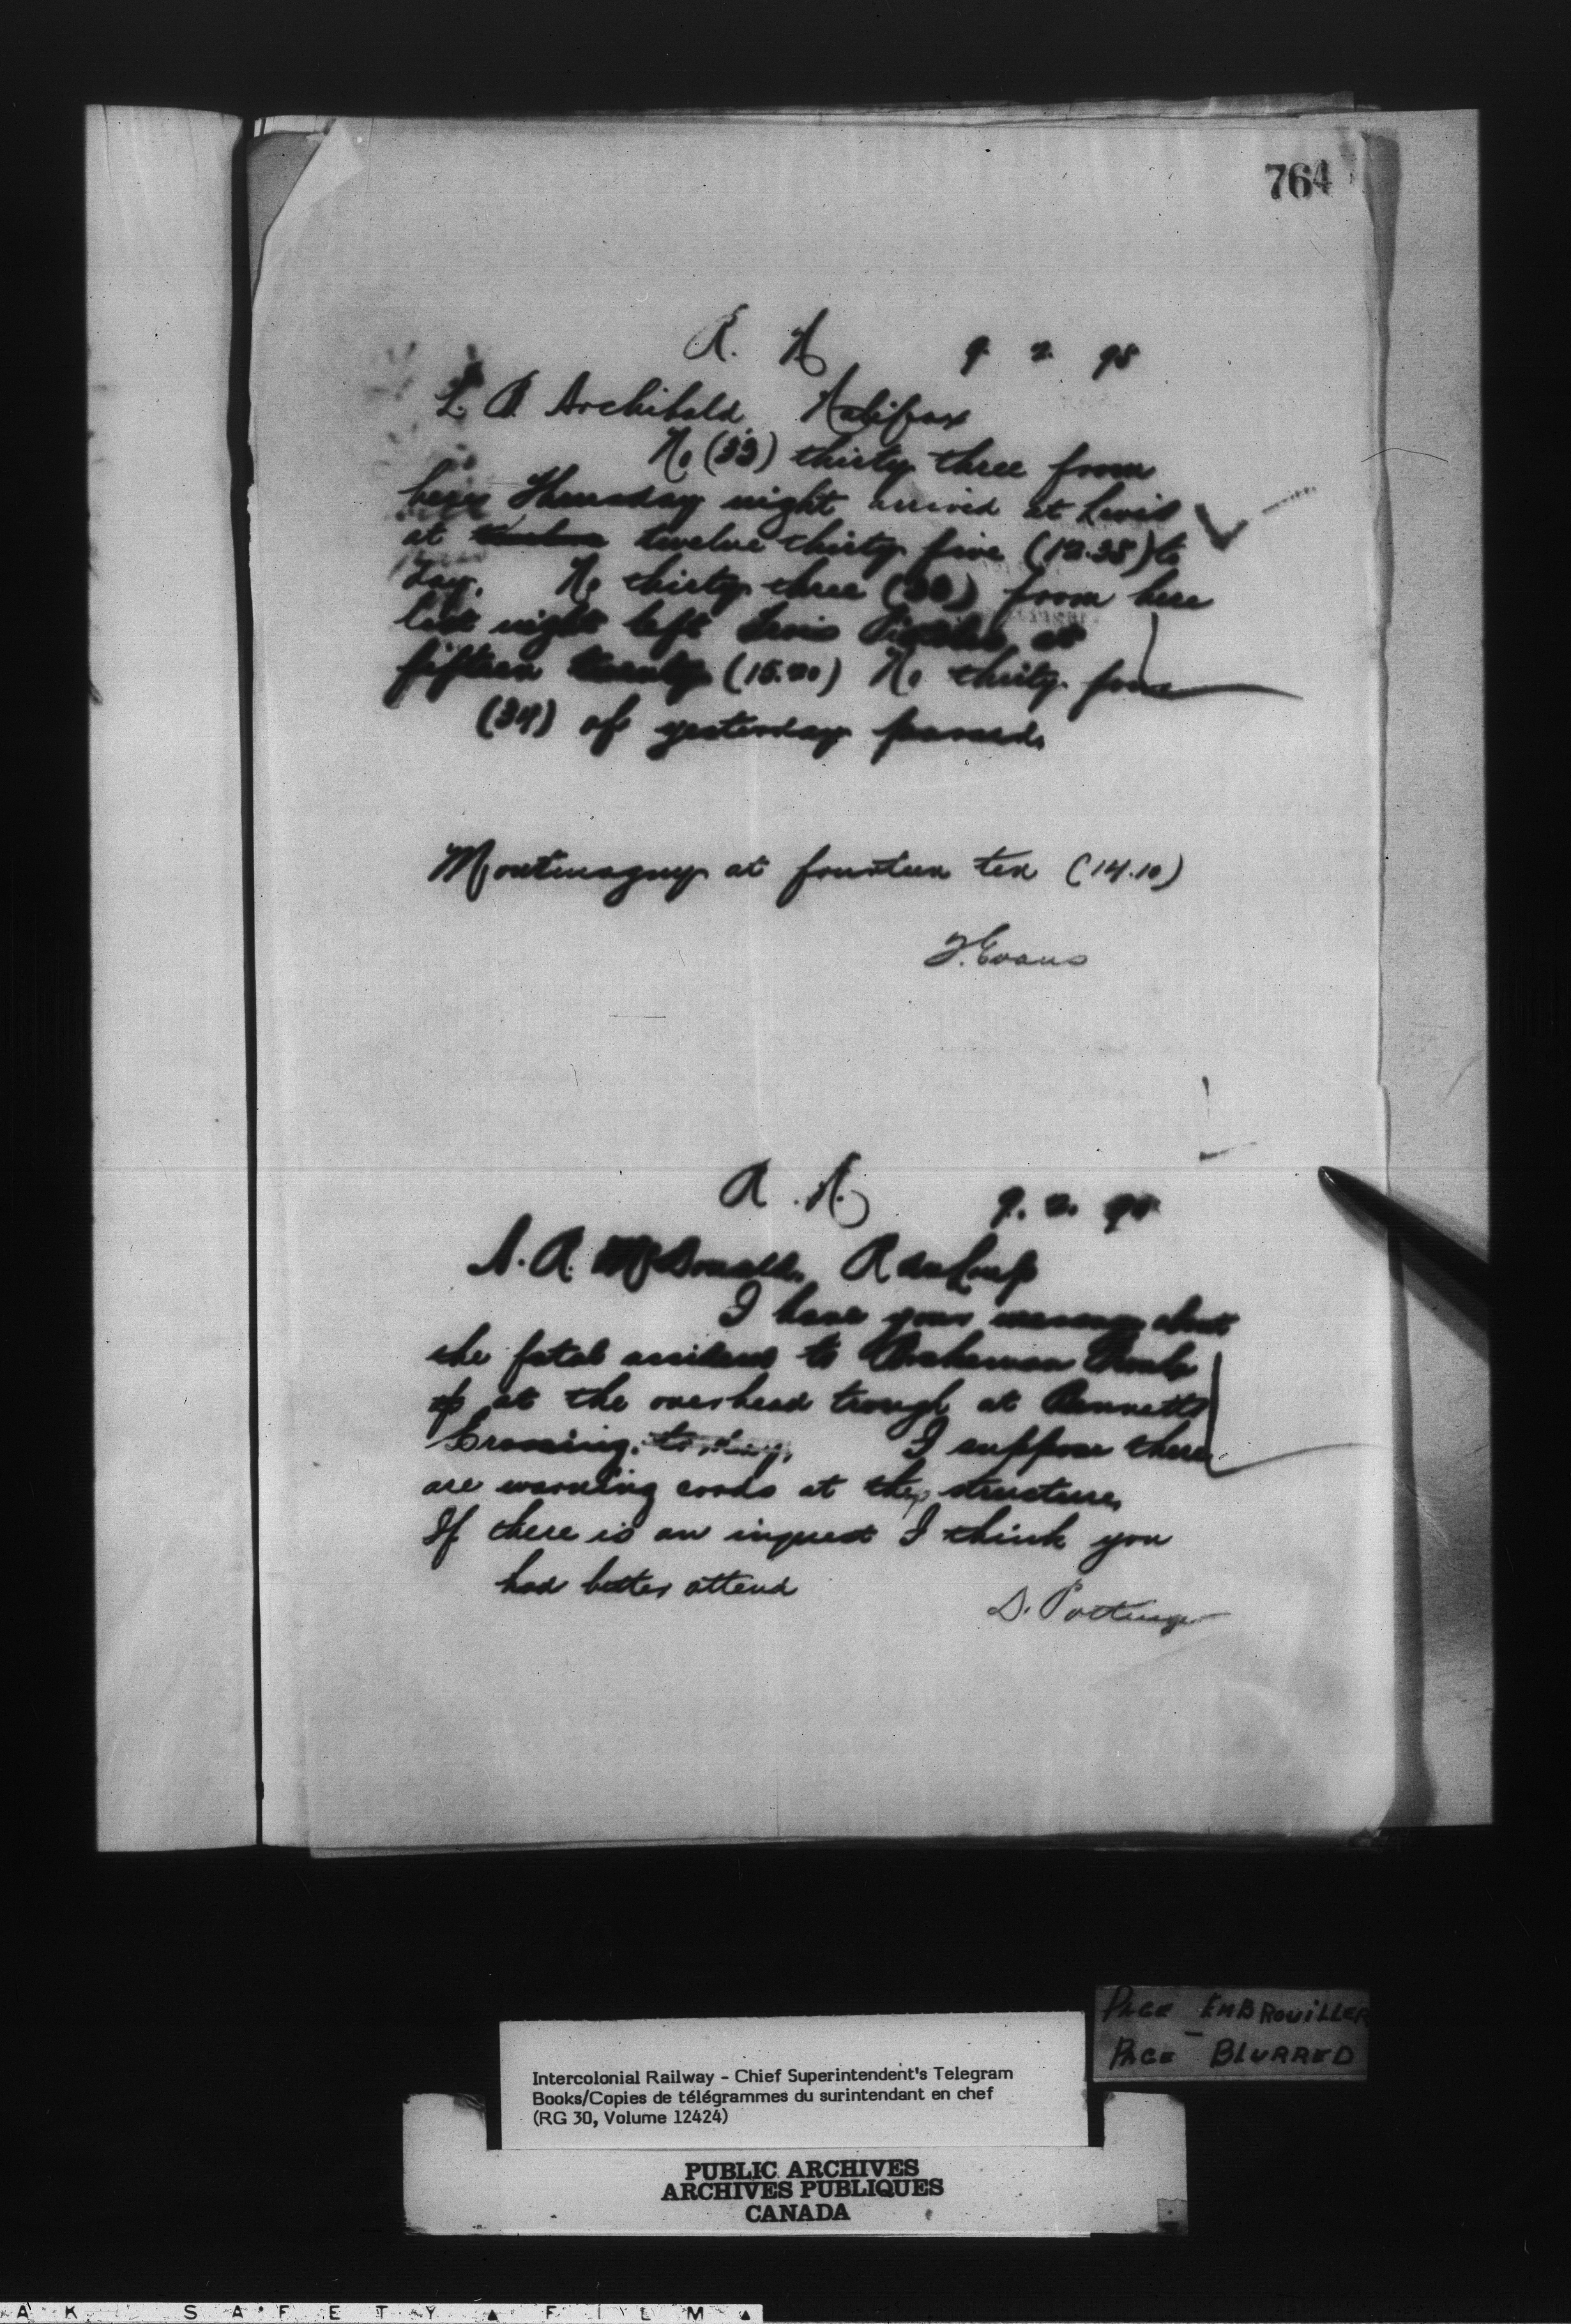 764
R. N 9. 2. 95
L. B. Archibald Halifax
No (33) thirty three from
here Thursday night arrived at Levis
at twelve thirty five (12.35) to
day. No thirty three (33) from here
last night left Levis at
fifteen twenty (15.20) No thirty four
(34) of yesterday passed
Montmagny at fourteen ten (14.10)
T. Evans
R. N. 9. 2. 95
A. R. McDonald, R du Loup
I have your message about
the fatal accident to Brakeman
at the overhead trough at Bennetts
Crossing. to day, I suppose there
are warning cords at the structure,
If there is an inquest I think you
had better attend
D. Pottinger
PAGE EMBROUILLER
PAGE BLURRED
Intercolonial Railway - Chief Superintendent's Telegram
Books/Copies de télégrammes du surintendant en chef
(RG 30, Volume 12424)
PUBLIC ARCHIVES
ARCHIVES PUBLIQUES
CANADA
A K S A F E T Y ▲ F I L M ▲